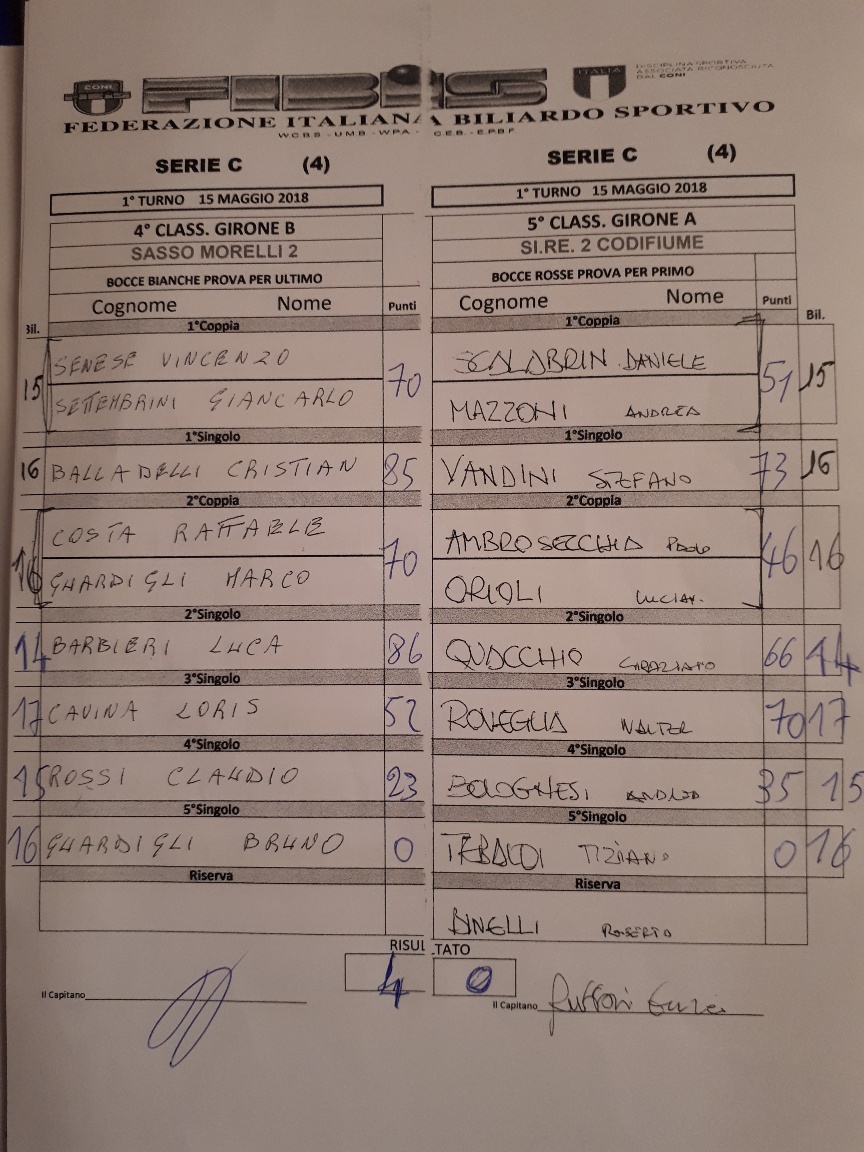 CONI FIBiS ITALIA DISCIPLINA SPORTIVA
ASSOCIATA RICONOSCIUTA
DAL CONI
FEDERAZIONE ITALIANA BILIARDO SPORTIVO
W C B S - U M B - W P A - C.E.B. - E.P.B.F.
SERIE C (4) SERIE C (4)
1° TURNO 15 MAGGIO 2018 1° TURNO 15 MAGGIO 2018
4° CLASS. GIRONE B 5° CLASS. GIRONE A
SASSO MORELLI 2 SI.RE. 2 CODIFIUME
BOCCE BIANCHE PROVA PER ULTIMO BOCCE ROSSE PROVA PER PRIMO
Cognome Nome Punti Cognome Nome Punti Bil.
Bil. 1°Coppia 1°Coppia
SENESE VINCENZO SCALABRIN DANIELE
15 70 51 15
SETTEMBRINI GIANCARLO MAZZONI ANDREA
1°Singolo 1°Singolo
16 BALLADELLI CRISTIAN 85 VANDINI STEFANO 73 16
2°Coppia 2°Coppia
COSTA RAFFAELE AMBROSECCHIA PAOLO
16 70 46 16
GUARDIGLI MARCO ORIOLI LUCIAN.
2°Singolo 2°Singolo
14 BARBIERI LUCA 86 QUACCHIO GRAZIATO 66 14
3°Singolo 3°Singolo
17 CAVINA LORIS 52 ROVEGLIA WALTER 70 17
4°Singolo 4°Singolo
15 ROSSI CLAUDIO 23 BOLOGNESI ANDREA 35 15
5°Singolo 5°Singolo
16 GUARDIGLI BRUNO 0 TEBALDI TIZIANO 0 16
Riserva Riserva
BINELLI ROBERTO
RISULTATO
4 0
Il Capitano Il Capitano